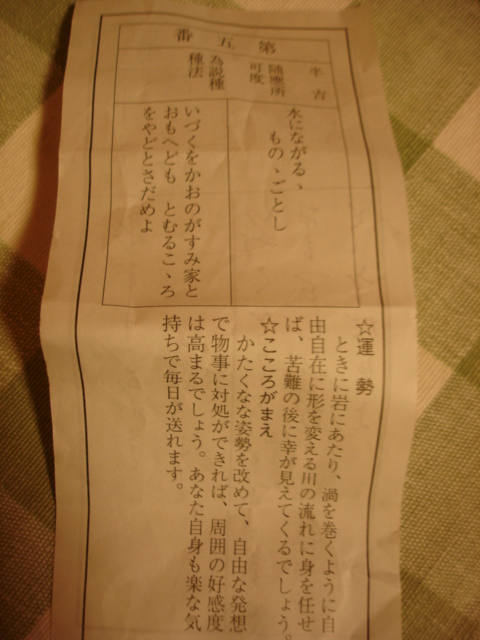 第五番
半吉
随應所
可度
為説種
種法
水にながるゝ
ものゝごとし
いづくをかおのがすみ家と
おもへども　とむるこゝろ
をやどとさだめよ
☆運勢
ときに岩にあたり、渦を巻くように自
由自在に形を変える川の流れに身を任せ
ば、苦難の後に幸が見えてくるでしょう。
☆こころがまえ
かたくなな姿勢を改めて、自由な発想
で物事に対処ができれば、周囲の好感度
は高まるでしょう。あなた自身も楽な気
持ちで毎日が送れます。